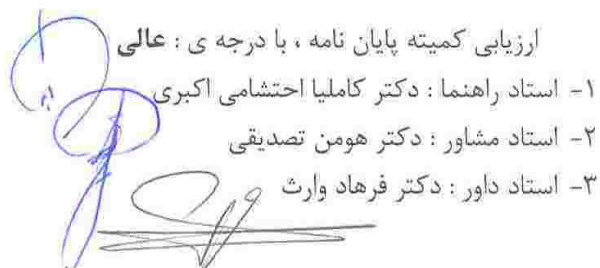 ارزیابی کمیته پایان نامه ، با درجه ی : عالی
۱- استاد راهنما : دکتر کاملیا احتشامی اکبری
۲- استاد مشاور : دکتر هومن تصدیقی
۳- استاد داور : دکتر فرهاد وارث